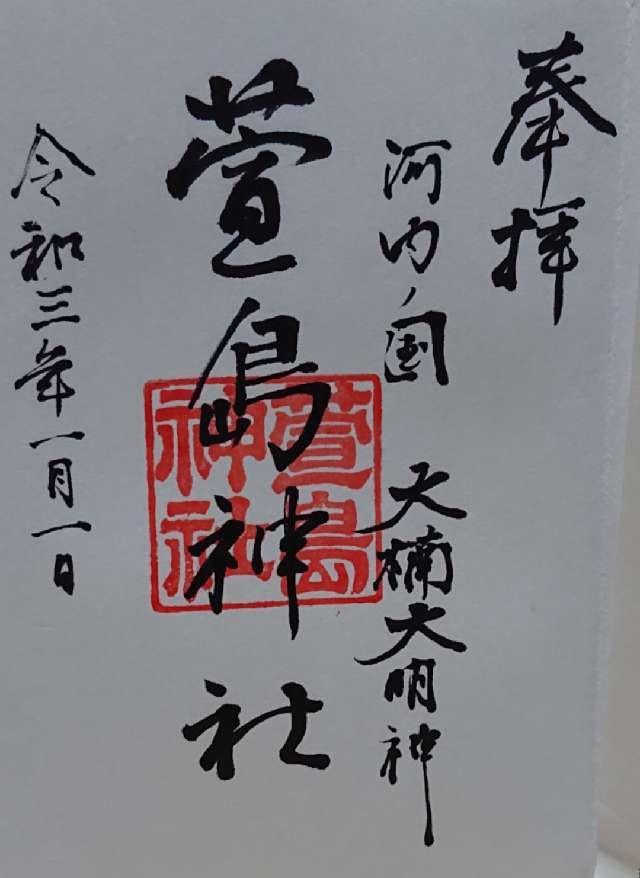 奉拝
河内国 大楠大明神
萱島神社
萱島神社
令和三年一月一日